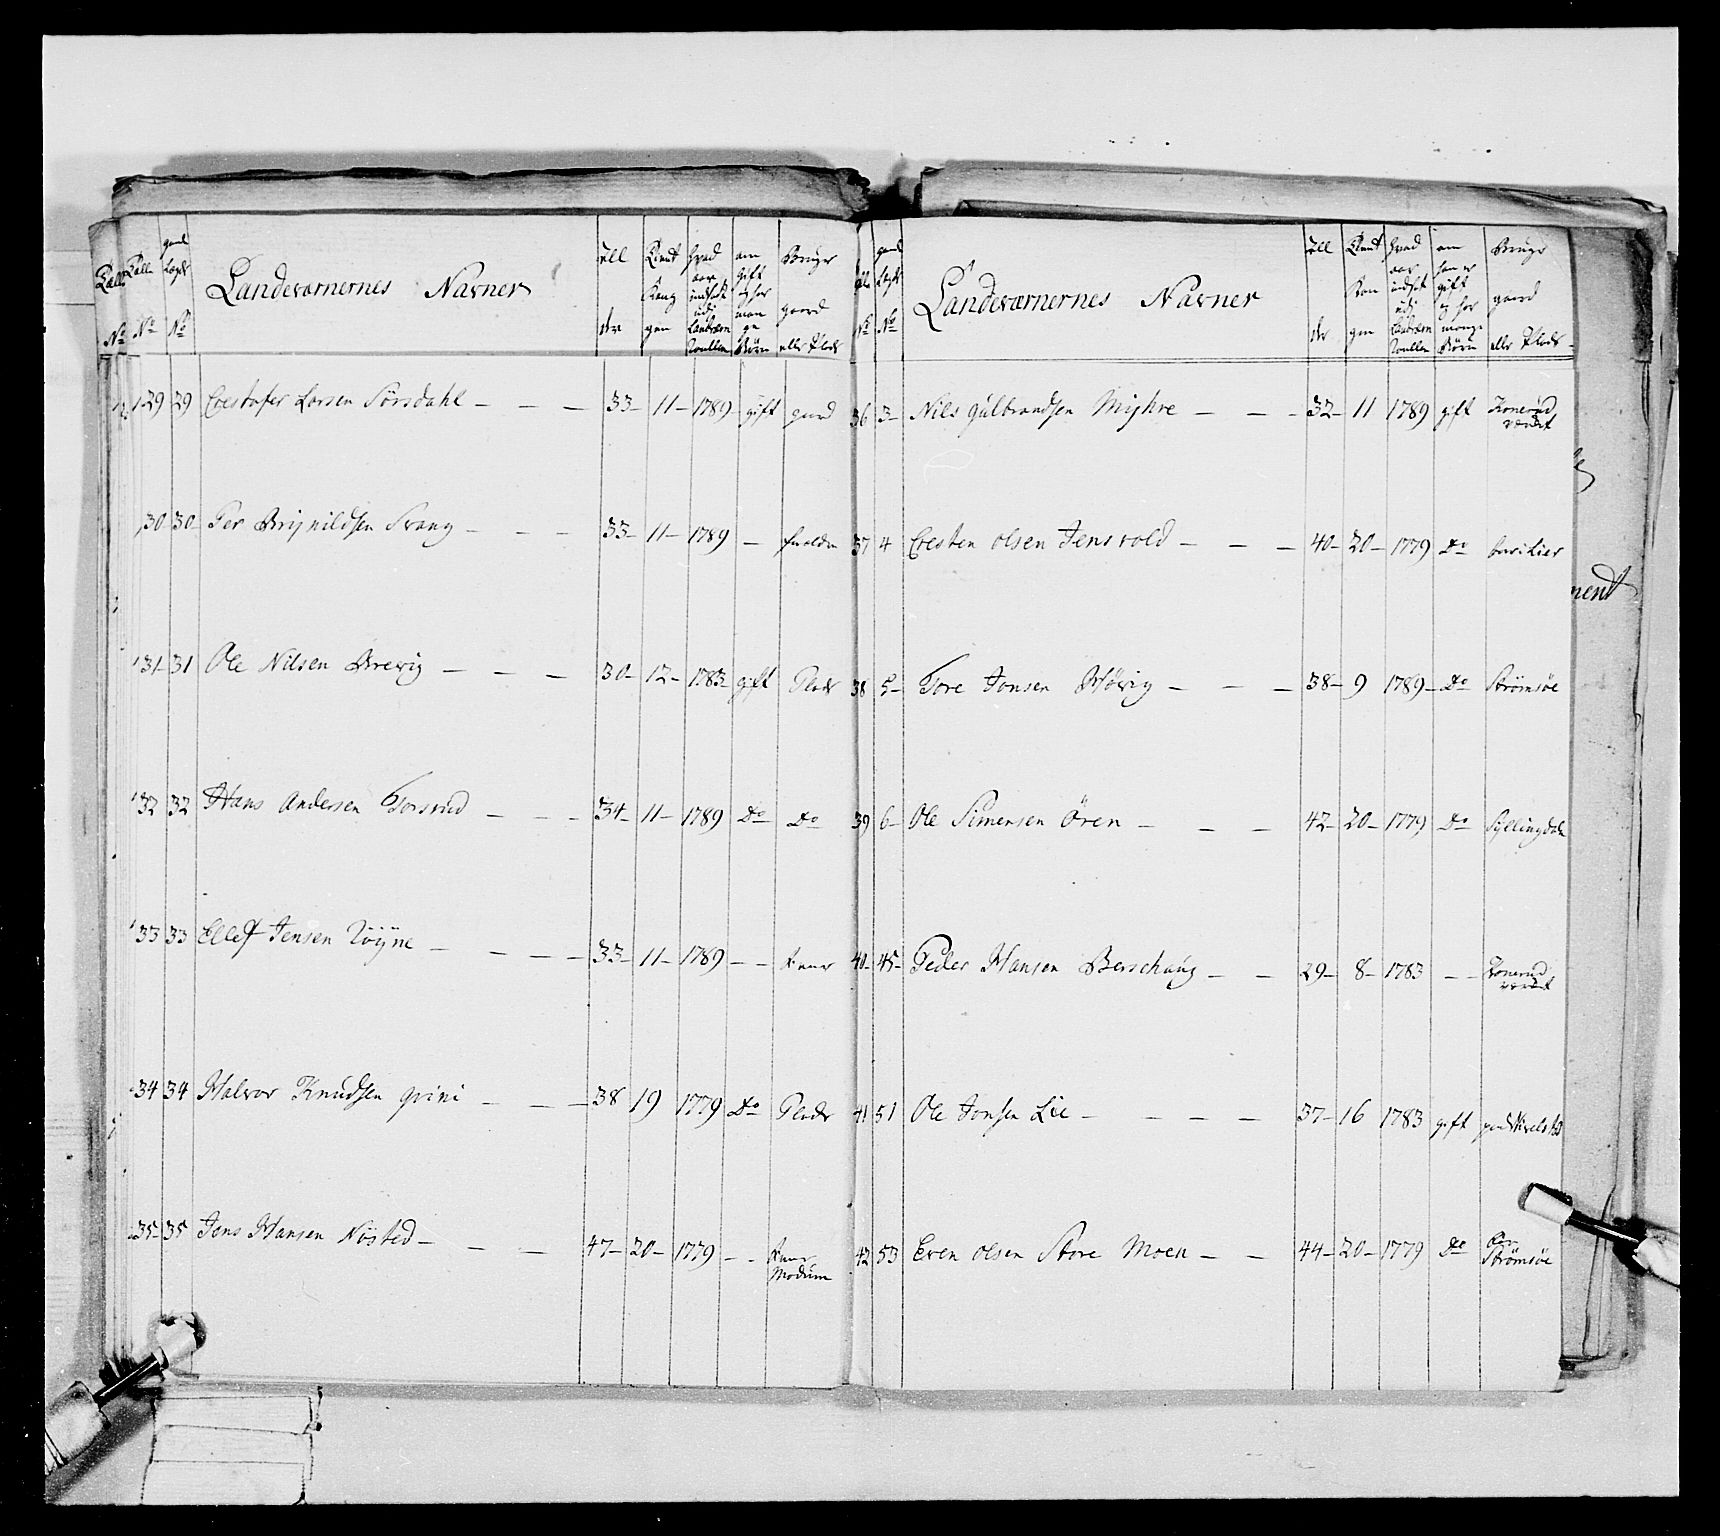 Rulle
No
gaml
Lægds
No
Landeværnernes Navner
All
der
om
gift
og har
man
ge
Børn
Bruger
gaard
eller Plads
29 29 Crestofer Larsen Sörsdahl — — — 33 — 11 — 1789 gift gaard
30 30 Per Brynildsen Svang — — — 33 — 11 — 1789 —
31 31 Ole Nilsen Brevig — — — 30 — 12 — 1783 gift Plads
32 32 Hans Andersen Torsrud — — — 34 — 11 — 1789 Do Do
33 33 Ellef Jensen Röyne — — — — 33 — 11 — 1789 — —
34 34 Halvor Knudsen grini — — — 38 19 1779 Do Plads
35 35 Jens Hansen Nösted — — — 47 — 20 — 1779 — —
Modum
No
gaml
No
Landeværnernes Navner
All
der
om
han er
gift
og har
mange
Børn
Bruger
gaard
eller Plads
36 3 — Nils gulbrandsen Myhre — — — 32 — 11 1789 gift Konerud
værket
37 4 Cresten olsen Jensvold — — — 40 — 20 — 1779 Do
38 5 — Tore Jonsen Hövig — — — 38 — 9 1789 — Do Strömsöe
39 6 — Ole Simensen Ören — — — 42 — 20 — 1779 Do Syllingdale
40 45 — Peder Hansen Berschaug — — 29 — 8 — 1783 — — Konerud
værket
41 51 Ole Jonsen Lie — — — — 37 — 16 1783 gift
42 53 Even olsen Store Moen — — 44 — 20 — 1779 Do
Strömsöe
ment